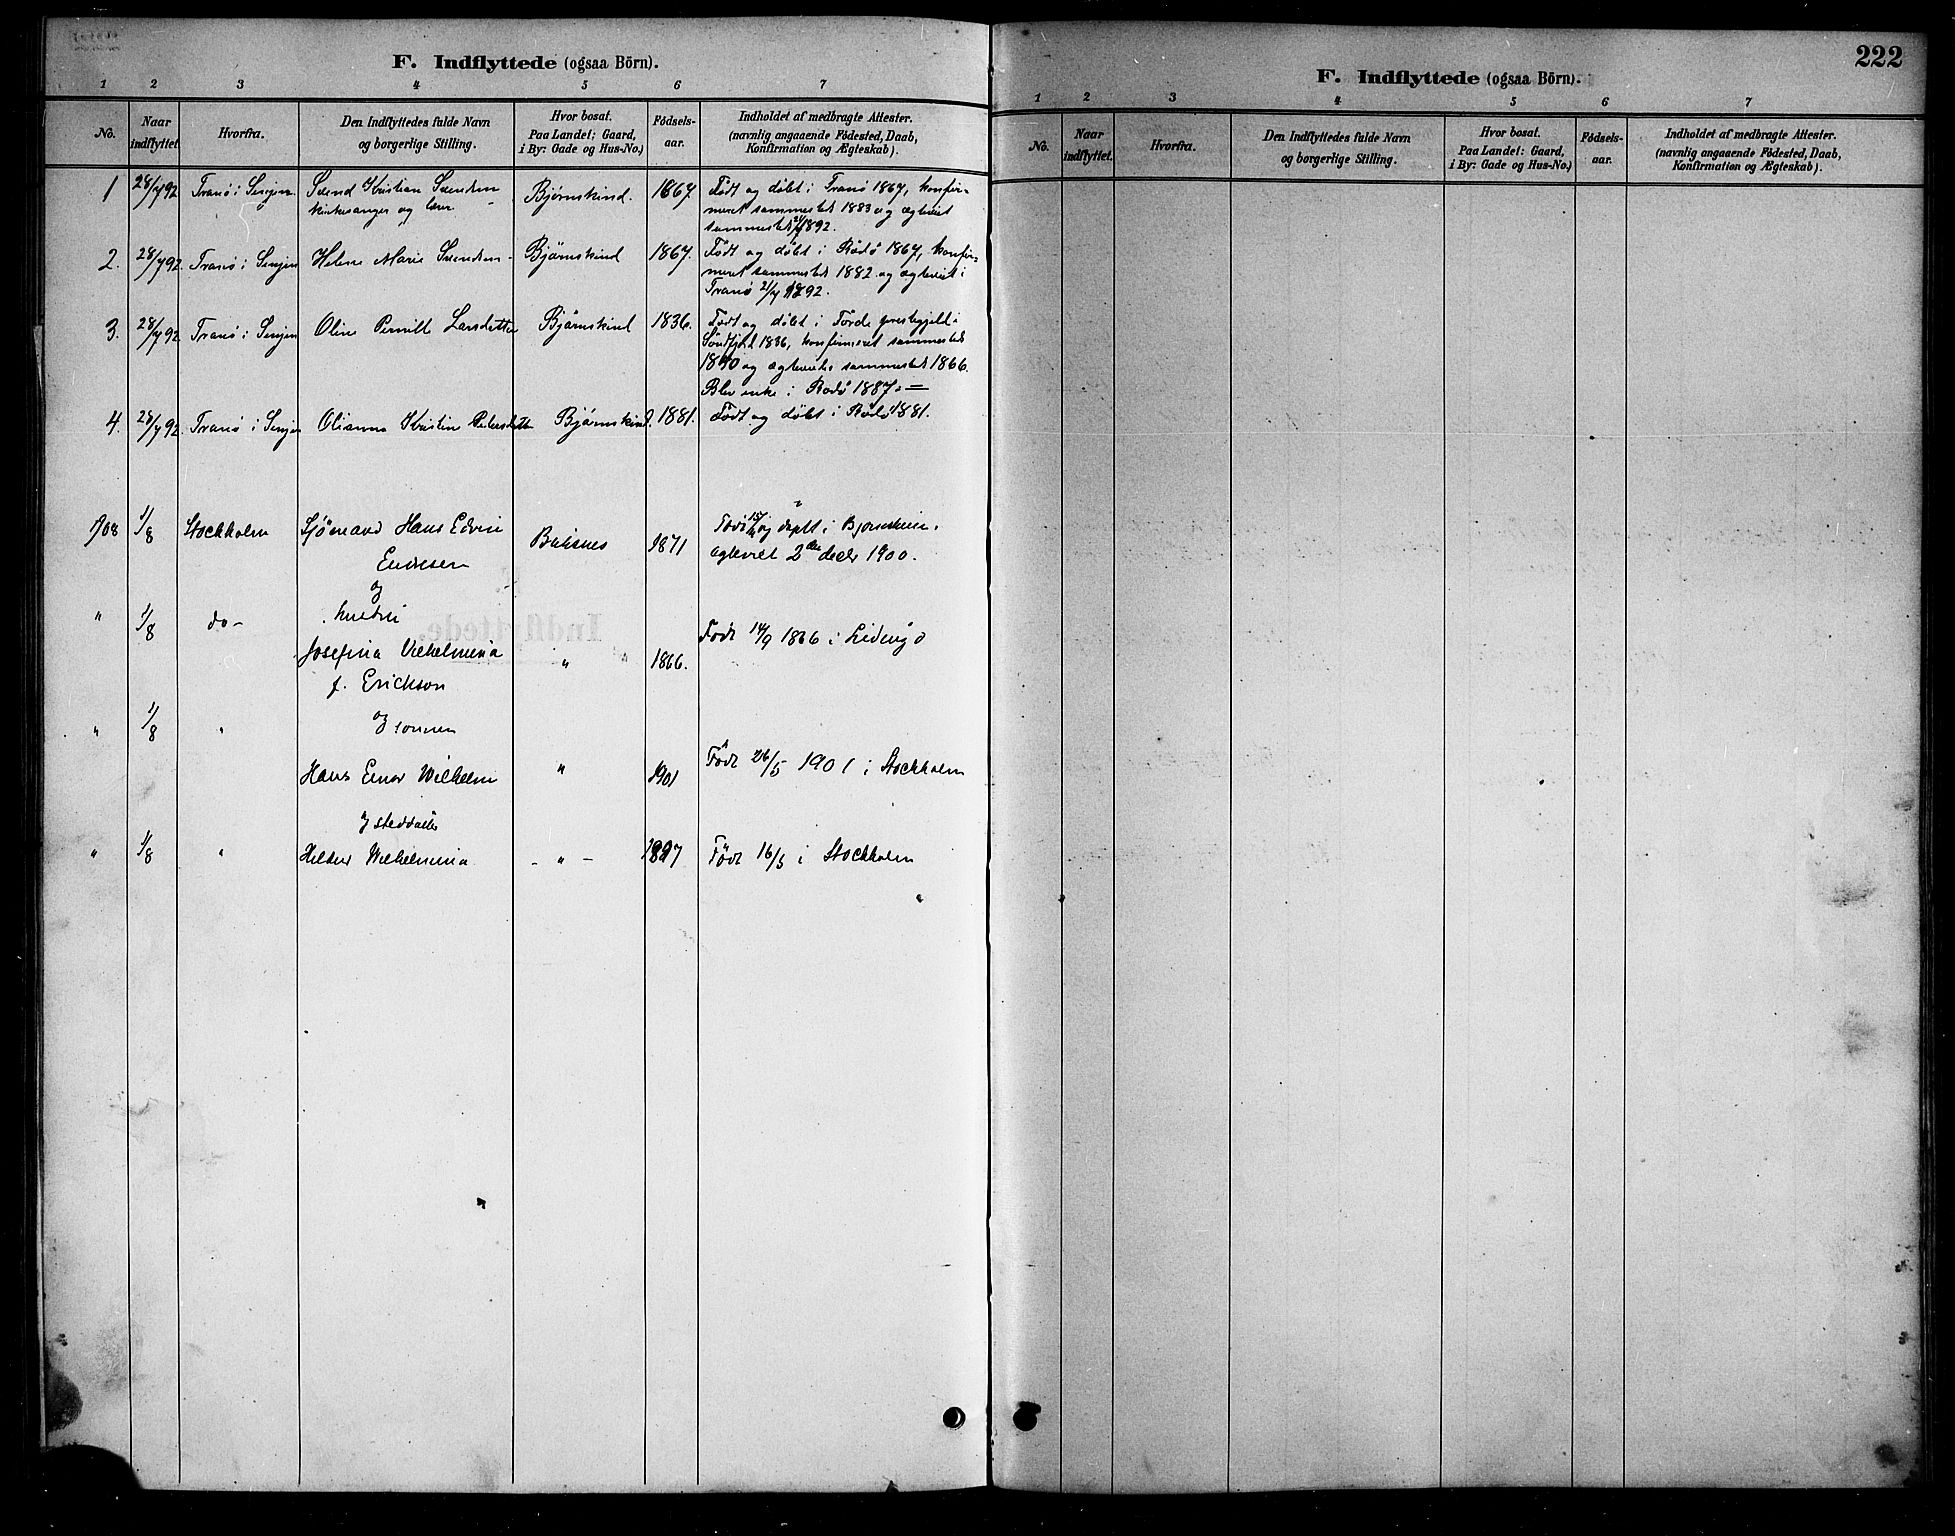 F. Indflyttede (ogsaa Börn).
1 2 3 4 5 6 7
No.
Naar indflyttet.
Hvorfra.
Den Indflyttedes fulde Navn
og borgerlige Stilling.
Hvor bosat.
Paa Landet: Gaard,
i By: Gade og Hus-No.)
Födsels-
aar.
Indholdet af medbragte Attester.
(navnlig angaaende Födested, Daab,
Konfirmation og Ægteskab).
1 28/7 92 Tranö i Senjen Svend Kristian Svendsen Bjørnskind. 1867. Født og døbt i Tranö 1867, konfir-
kirkesanger og lærer meret sammesteds 1883 og ægteviet
sammesteds 21/7 1892.
2. 28/7 92. Tranö i Senjen Helene Marie Svendsen Bjørnskind 1867. Født og døbt i Rödö 1867, konfir-
meret sammesteds 1882 og ægteviet i
Tranö 21/7 92.
3. 28/7 92 Tranö i Senjen Oline Pernille Larsdatter Bjørnskind 1836. Født og døbt i Förde prestegjeld i
Söndfjord 1836, konfirmeret sammesteds
og ægteviet sammesteds 1866.
Blev enke i Rödö 1887. =
4. 28/7 92. Tranö i Senjen Olianna Kristine Pedersdatter Bjørnskind. 1881. Født og døbt i Rödö 1881.
1908 1/8 Stockholm Sjømand Hans Edvin Buksnes 1871 Født og døpt i
Eriksen ægteviet 2den decbr 1900.
og
" 1/8 do - hustru
Josefina Vilhelmina " " 1866. Født 14/9 1866 i Lidingö
f. Erickson
" 1/8 " og sønnen
Hans Einar Wilhelm " 1901 Født 26/5 1901 i Stockholm
og steddatter
" 1/8 " Wilhelmina - " - 1897 Født 16/5 i Stockholm
222
F. Indflyttede (ogsaa Börn).
1 2 3 4 5 6 7
No.
Naar
indflyttet.
Hvorfra.
Den Indflyttedes fulde Navn
og borgerlige Stilling.
Hvor bosat.
Paa Landet: Gaard,
i By: Gade og Hus-No.)
Födsels-
aar.
Indholdet af medbragte Attester.
(navnlig angaaende Födested, Daab,
Konfirmation og Ægteskab).